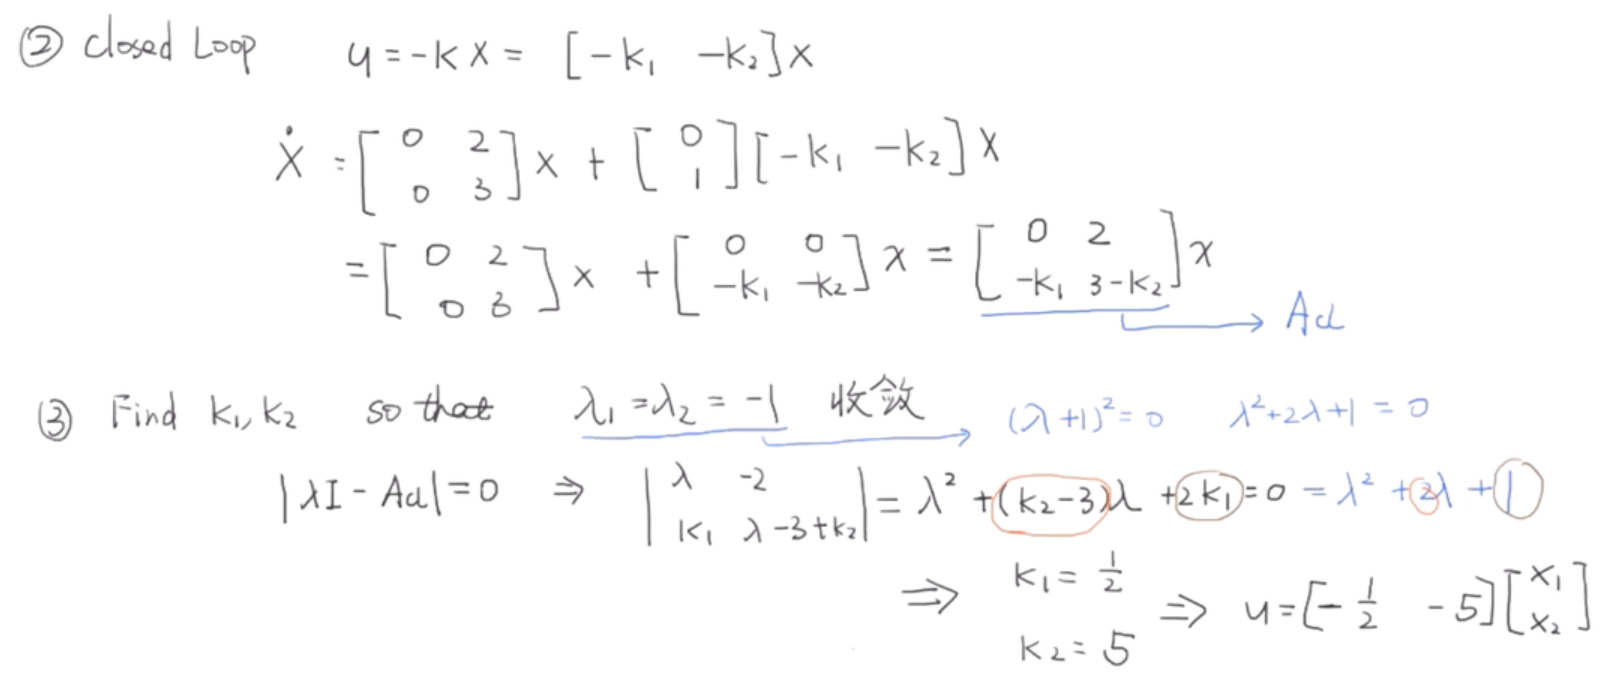 ② Closed Loop u = -Kx = [-k₁ -k₂]x
ẋ = [0 2; 0 3]x + [0; 1][-k₁ -k₂]x
= [0 2; 0 3]x + [0 0; -k₁ -k₂]x = [0 2; -k₁ 3-k₂]x
→ Acl
③ Find k₁, k₂ so that λ₁ = λ₂ = -1 收敛 → (λ+1)² = 0 λ²+2λ+1 = 0
|λI - Acl| = 0 ⇒ |λ -2; k₁ λ-3+k₂| = λ² + (k₂-3)λ + 2k₁ = 0 = λ² + 2λ + 1
⇒ k₁ = 1/2 ⇒ u = [-1/2 -5][x₁; x₂]
k₂ = 5